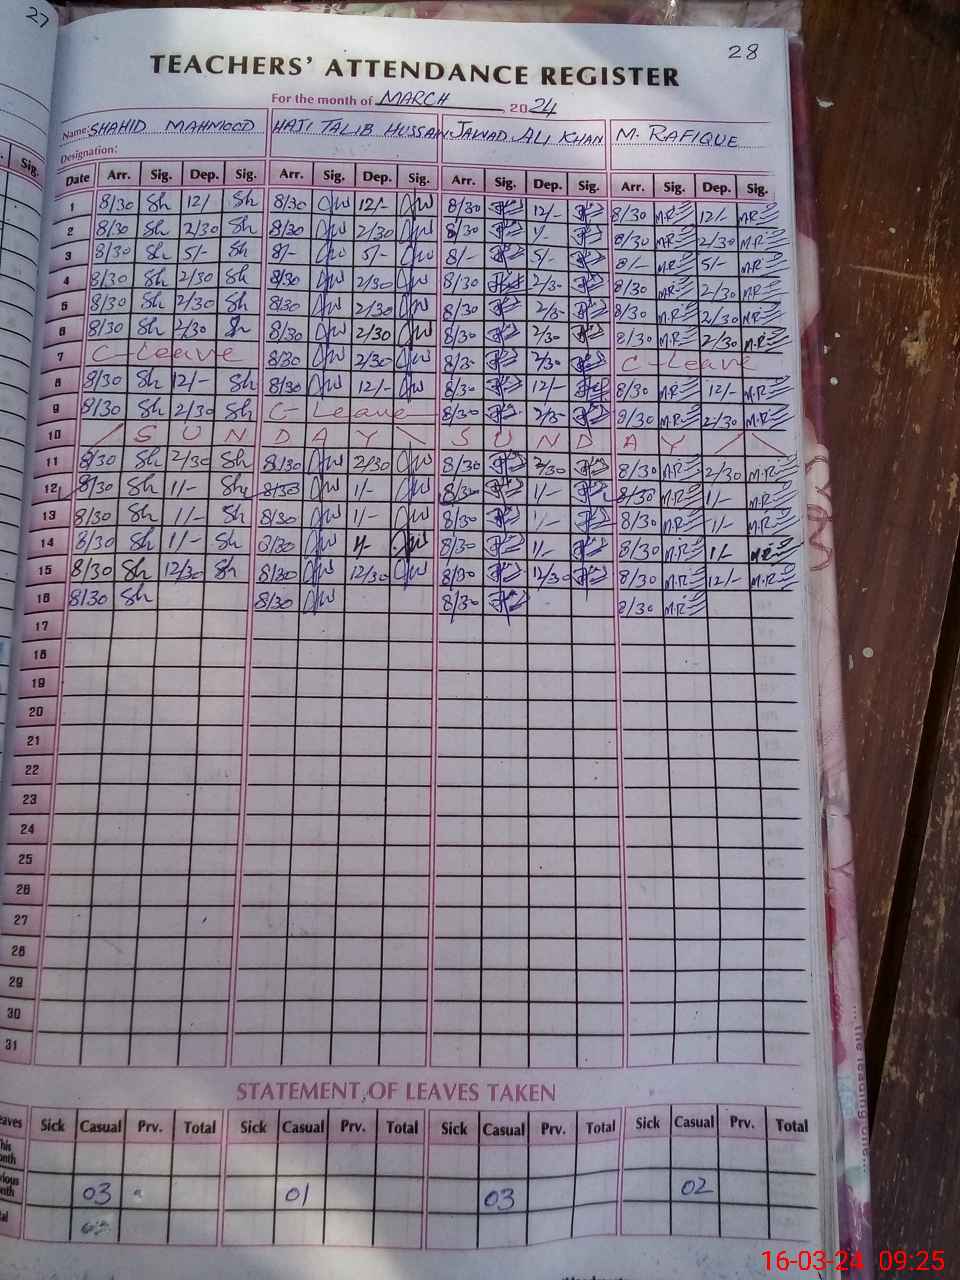 27
28
TEACHERS' ATTENDANCE REGISTER
For the month of MARCH 2024
Name: SHAHID MAHMOOD HAJI TALIB HUSSAIN JAWAD ALI KHAN M. RAFIQUE
Designation:
Sig. Date Arr. Sig. Dep. Sig. Arr. Sig. Dep. Sig. Arr. Sig. Dep. Sig. Arr. Sig. Dep. Sig.
1 8/30 Sh 12/ Sh 8/30 12/- 8/30 12/- 8/30 M.R 12/- M.R
2 8/30 Sh 2/30 Sh 8/30 2/30 8/30 8/30 M.R 2/30 M.R
3 8/30 Sh 5/- Sh 8/- 5/- 8/- 5/- 8/- M.R 5/- M.R
4 8/30 Sh 2/30 Sh 8/30 2/30 8/30 2/30 8/30 M.R 2/30 M.R
5 8/30 Sh 2/30 Sh 8/30 2/30 8/30 8/30 M.R 2/30 M.R
6 8/30 Sh 2/30 Sh 8/30 2/30 8/30 2/30 8/30 M.R 2/30 M.R
7 C-Leave 8/30 2/30 8/30 2/30 C-Leave
8 8/30 Sh 12/- Sh 8/30 12/- 8/30 12/- 8/30 M.R 12/- M.R
9 8/30 Sh 2/30 Sh C-Leave 8/30 8/30 M.R 2/30 M.R
10 S U N D A Y S U N D A Y
11 8/30 Sh 2/30 Sh 8/30 2/30 8/30 2/30 8/30 M.R 2/30 M.R
12 8/30 Sh 1/- Sh 8/30 1/- 8/30 1/- 8/30 M.R 1/- M.R
13 8/30 Sh 1/- Sh 8/30 1/- 8/30 1/- 8/30 M.R 1/- M.R
14 8/30 Sh 1/- Sh 8/30 1/- 8/30 1/- 8/30 M.R 1/- M.R
15 8/30 Sh 12/30 Sh 8/30 12/30 8/30 12/30 8/30 M.R 12/- M.R
16 8/30 Sh 8/30 8/30 8/30 M.R
17
18
19
20
21
22
23
24
25
26
27
28
29
30
31
STATEMENT OF LEAVES TAKEN
Sick Casual Prv. Total Sick Casual Prv. Total Sick Casual Prv. Total Sick Casual Prv. Total
03 01 03 02
16-03-24 09:25